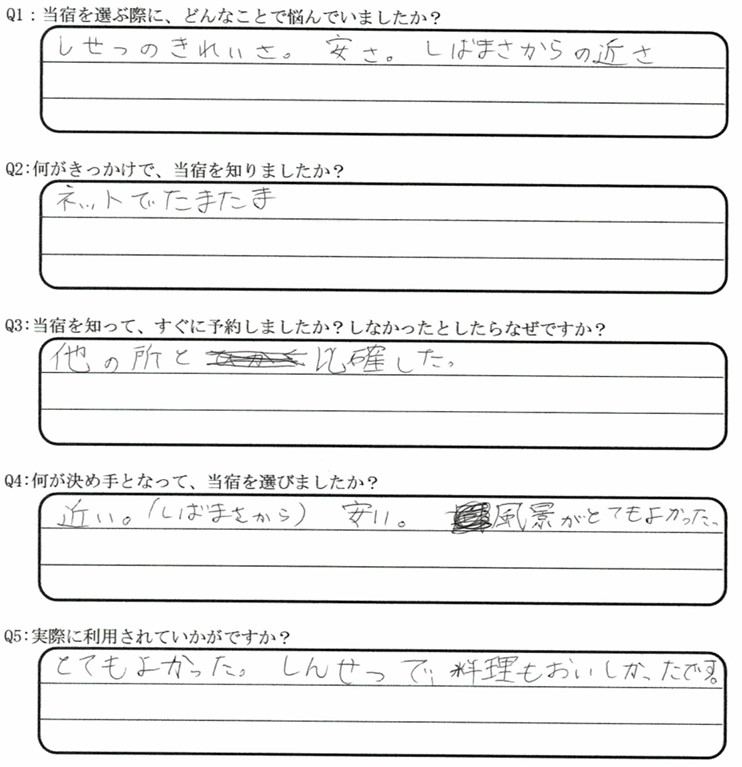 Q1：当宿を選ぶ際に、どんなことで悩んでいましたか？
しせつのきれいさ。 安さ。 しばまさからの近さ
Q2：何がきっかけで、当宿を知りましたか？
ネットでたまたま
Q3：当宿を知って、すぐに予約しましたか？しなかったとしたらなぜですか？
他の所と 比確した。
Q4：何が決め手となって、当宿を選びましたか？
近い。（しばまさから） 安い。 風景がとてもよかった。
Q5：実際に利用されていかがですか？
とてもよかった。 しんせつで、料理もおいしかったです。